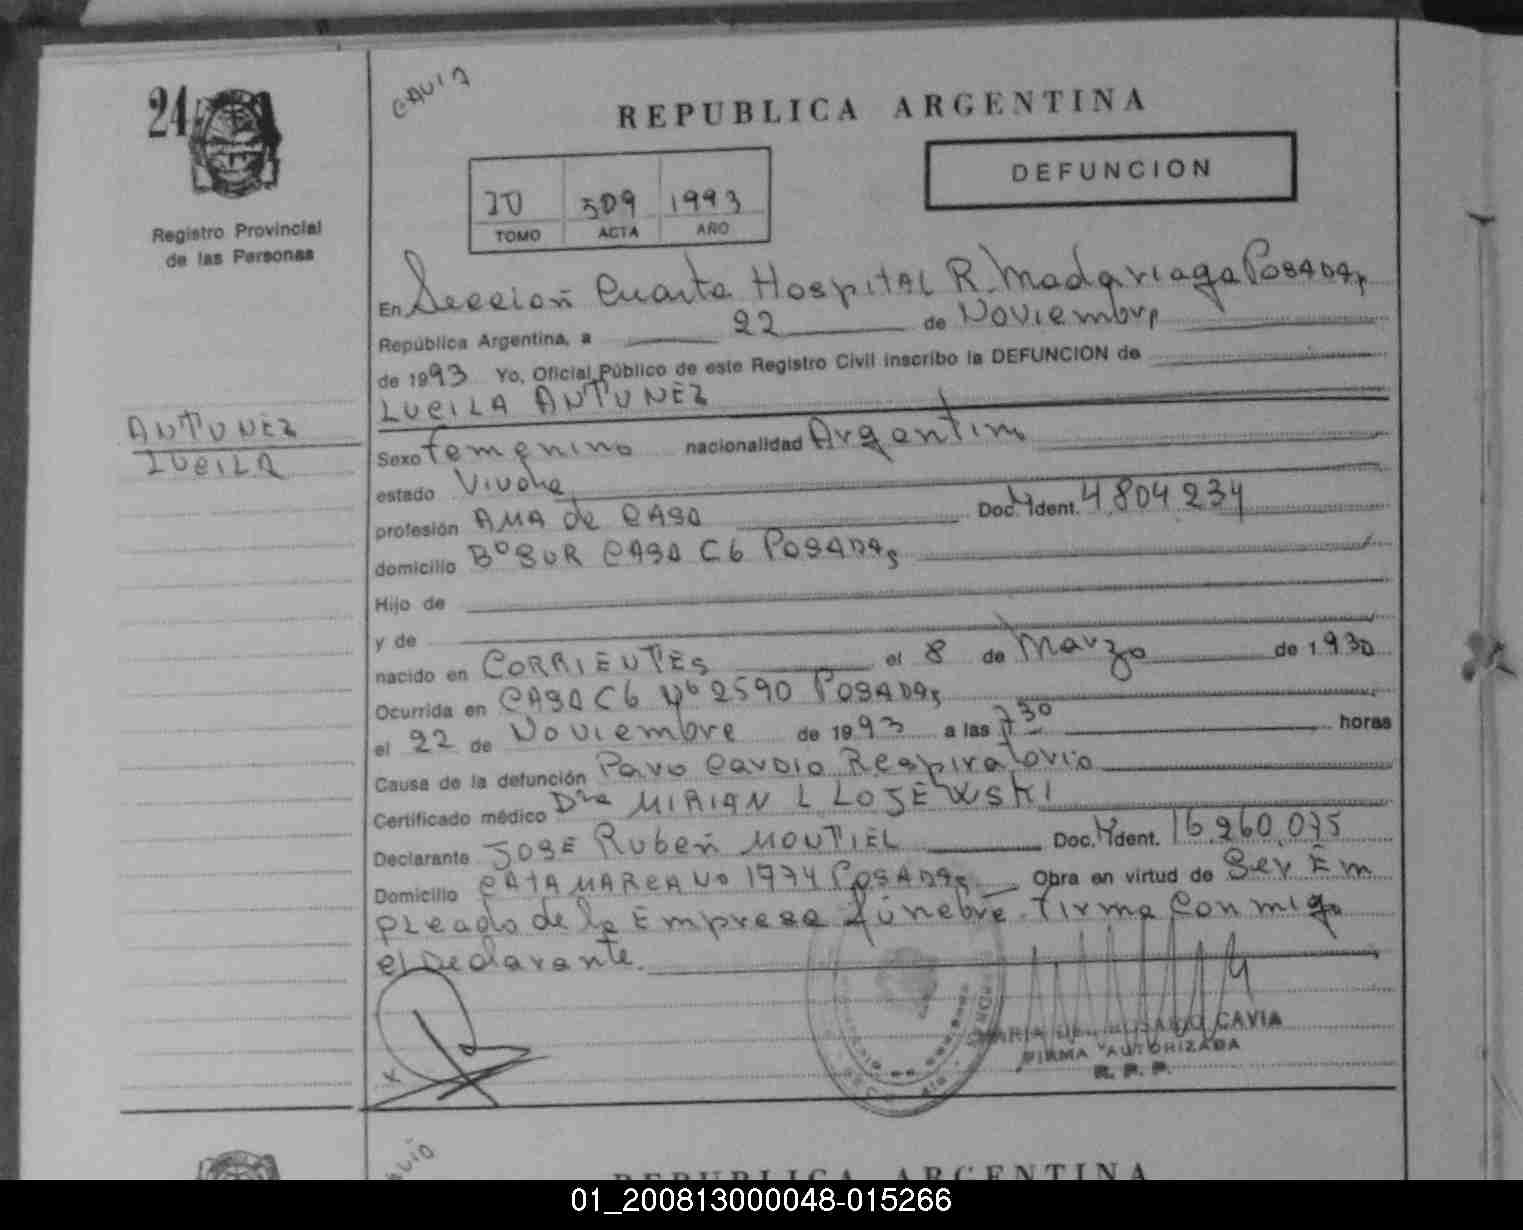 24
CAVIA
REPUBLICA ARGENTINA
DEFUNCION
509 1993
TOMO ACTA AÑO
Registro Provincial
de las Personas
En Sección Cuarta Hospital R. Madariaga Posadas,
República Argentina, a 22 de Noviembre
de 1993 Yo, Oficial Público de este Registro Civil inscribo la DEFUNCION de
LUCILA ANTUNEZ
ANTUNEZ
LUCILA
Sexo Femenino nacionalidad Argentina
estado Viuda
profesión AMA de CASA Doc. Ident. 4.804.234
domicilio Bº SUR CASA C6 POSADAS
Hijo de
y de
nacido en CORRIENTES el 8 de Marzo de 1930
Ocurrida en CASA C6 Nº 2590 POSADAS
el 22 de Noviembre de 1993 a las 7 30 horas
Causa de la defunción Paro Cardio Respiratorio
Certificado médico Dra MIRIAN L LOJEWSKI
Declarante JOSE Rubén MONTIEL Doc. Ident. 16.260.075
Domicilio CATAMARCA Nº 1974 POSADAS Obra en virtud de Ser Em
pleado de la Empresa fúnebre. Firma Conmigo
el Declarante.
MARIA DEL ROSARIO CAVIA
FIRMA AUTORIZADA
R. P. P.
REPUBLICA ARGENTINA
01_200813000048-015266